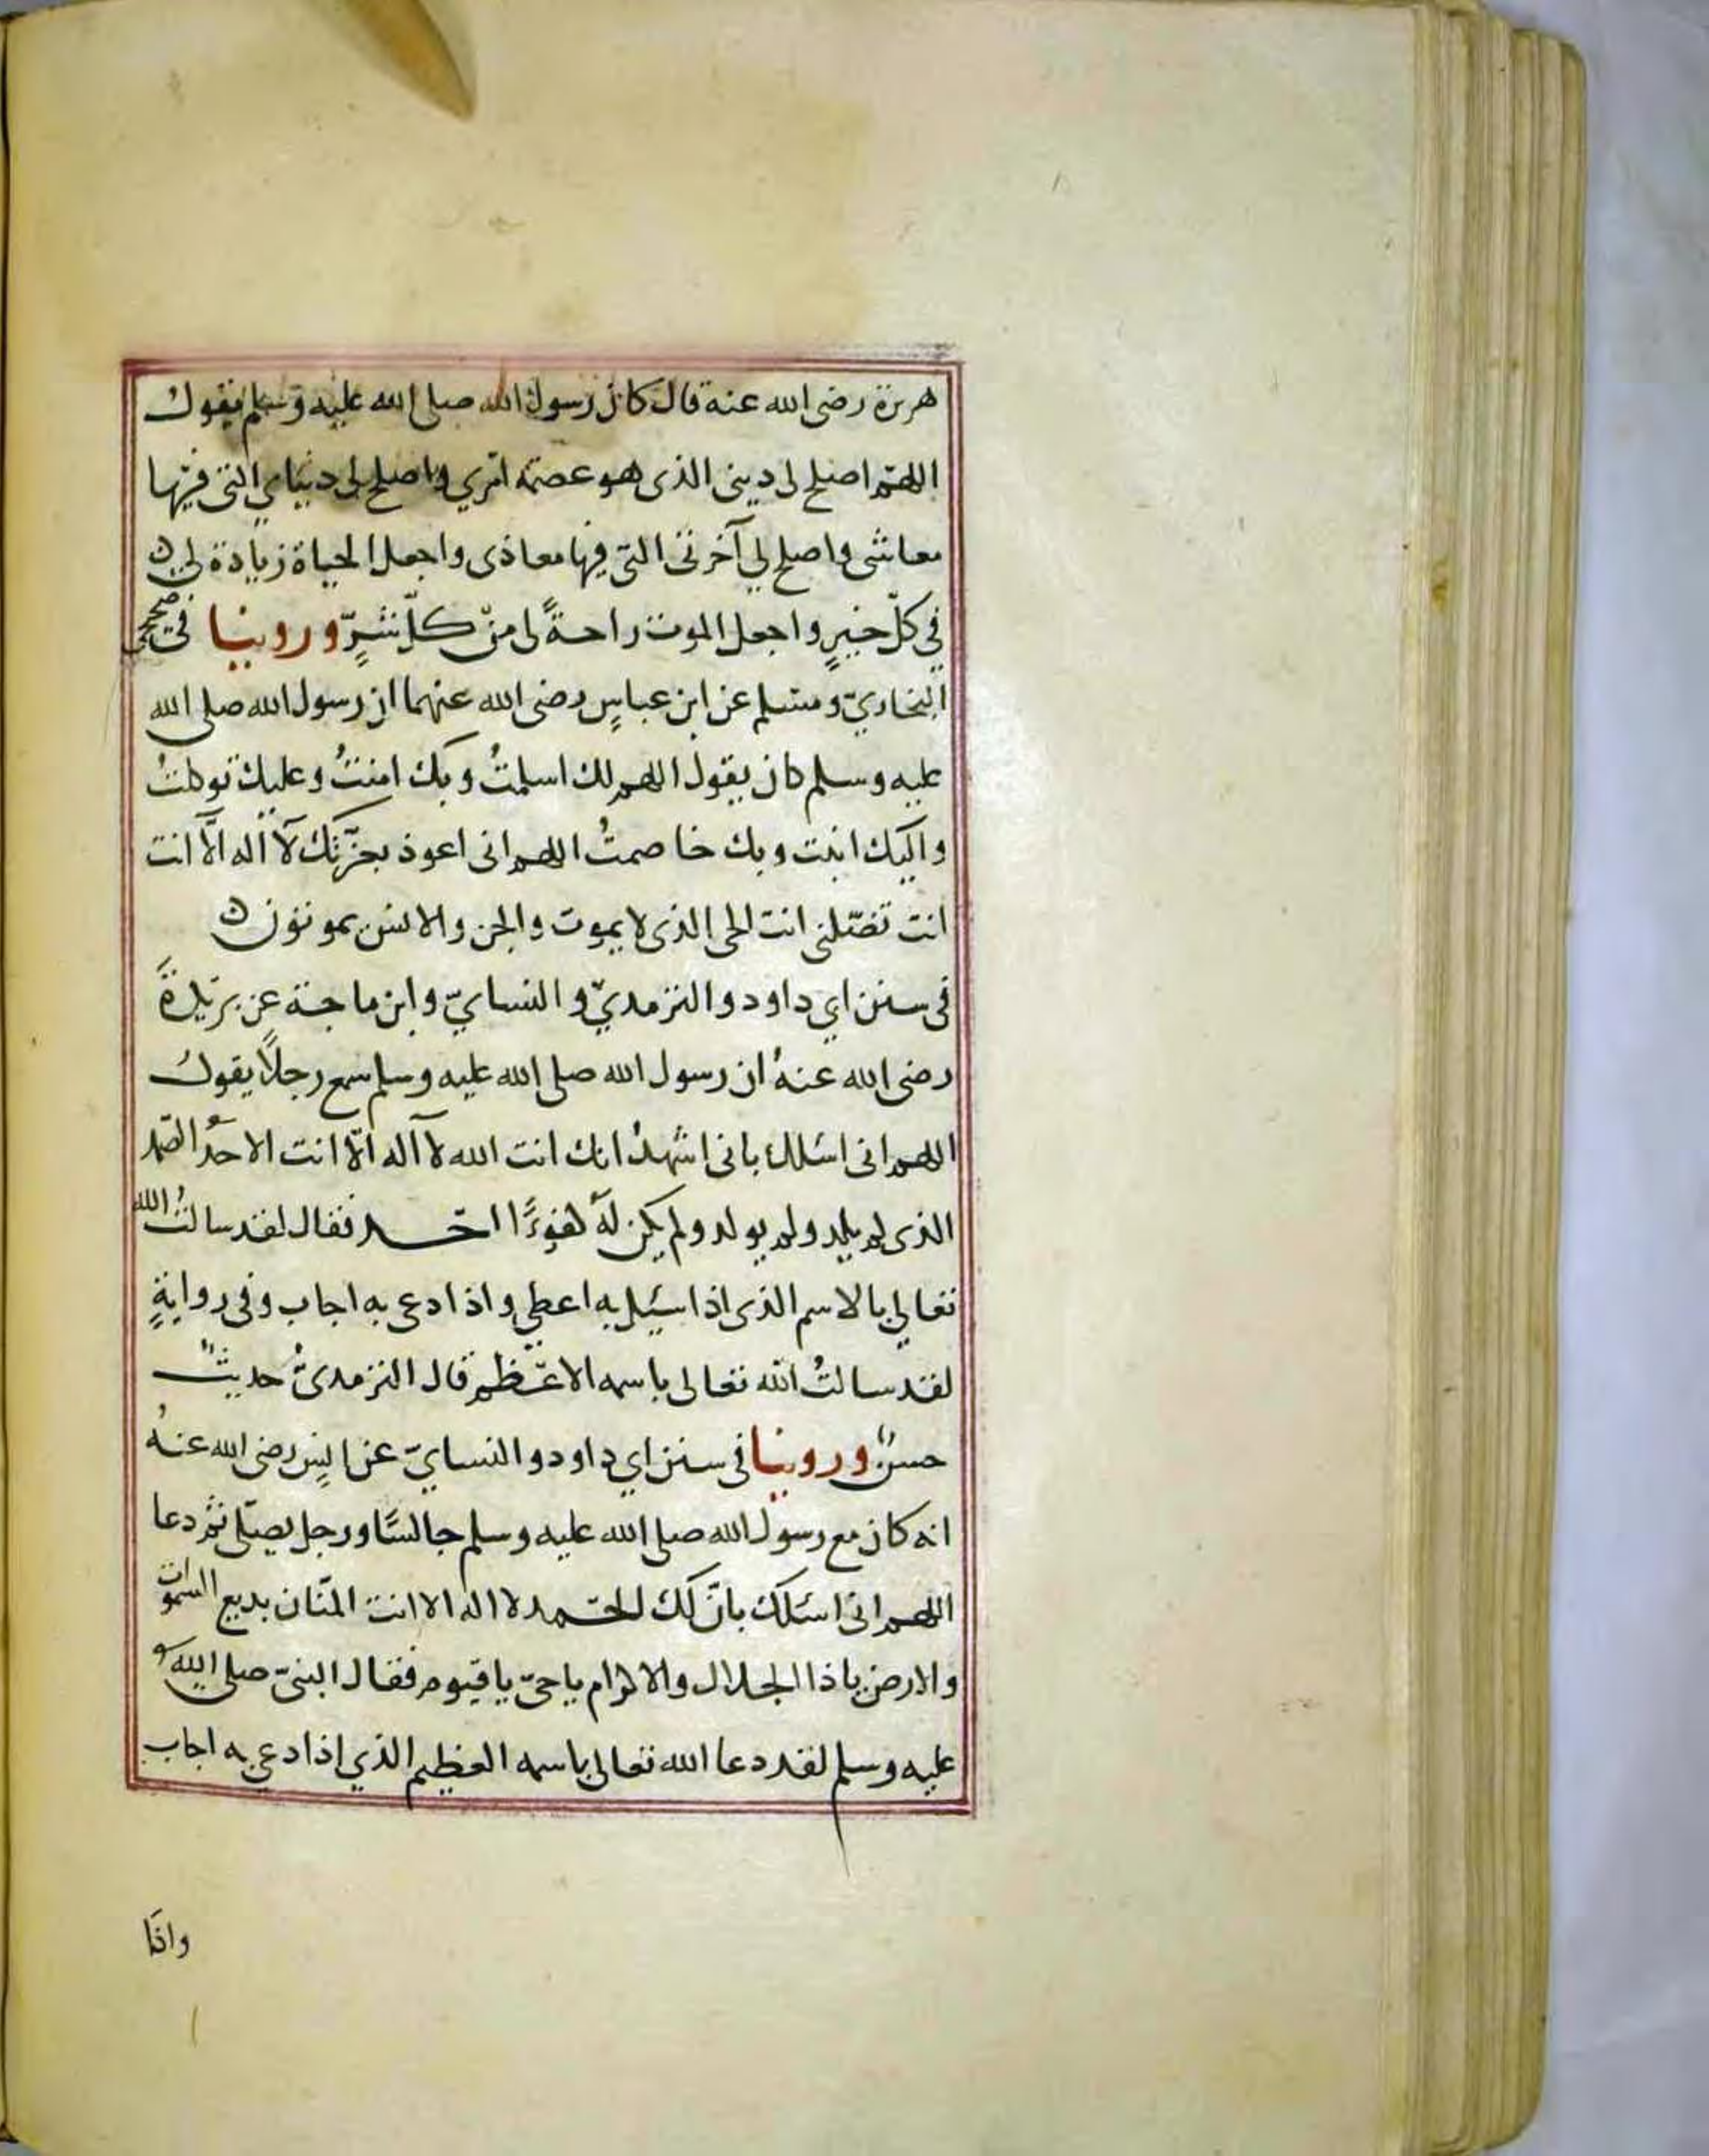 هريرة رضى الله عنه قال كان رسول الله صلى الله عليه وسلم يقول
اللهم اصلح لى دينى الذى هو عصمة امري واصلح لى دنياي التى فيها
معاشى واصلح لي آخرتى التى فيها معاذى واجعل الحياة زيادة لى
في كلّ خيرٍ واجعل الموت راحةً لى منْ كلّ شرٍّ وروينا فى صحيحى
البخاريّ ومسلم عن ابن عباسٍ رضى الله عنهما ان رسول الله صلى الله
عليه وسلم كان يقول اللهم لك اسلمتُ وبك امنتُ وعليك توكلتُ
واليك انبت وبك خاصمتُ اللهم انى اعوذ بعزّتك لآ اله الّا انت
انت تضّلنى انت الحى الذى لا يموت والجن والانس يموتون
فى سنن ابي داود والترمديّ والنسايّ وابن ماجة عن بريدةَ
رضى الله عنهُ ان رسول الله صلى الله عليه وسلم سمع رجلًا يقول
اللهم انى اسئلك بانى اشهدُ انك انت الله لآ اله الّا انت الاحدُ الصّمد
الذى لم يلد ولم يولد ولم يكن لهُ كفوءًا احد فقال لقد سالتُ الله
تعالى بالاسم الذى اذا سئيل به اعطي واذا دعى به اجاب وفى روايةٍ
لقد سالتُ الله تعالى باسمه الاعظم قال الترمدىُّ حديثٌ
حسنٌ وروينا فى سنن ابي داود والنسايّ عن انسٍ رضى الله عنهُ
انه كان مع رسول الله صلى الله عليه وسلم جالسًا ورجل يصلّى ثم دعا
اللهم انى اسئلك بانّ لك الحمد لا اله الا انت المنّان بديع السموات
والارض يا ذا الجلال والاكرام يا حىّ يا قيوم فقال النبىّ صلى الله
عليه وسلم لقد دعا الله تعالى باسمه العظيم الذي اذا دعى به اجاب
واذا